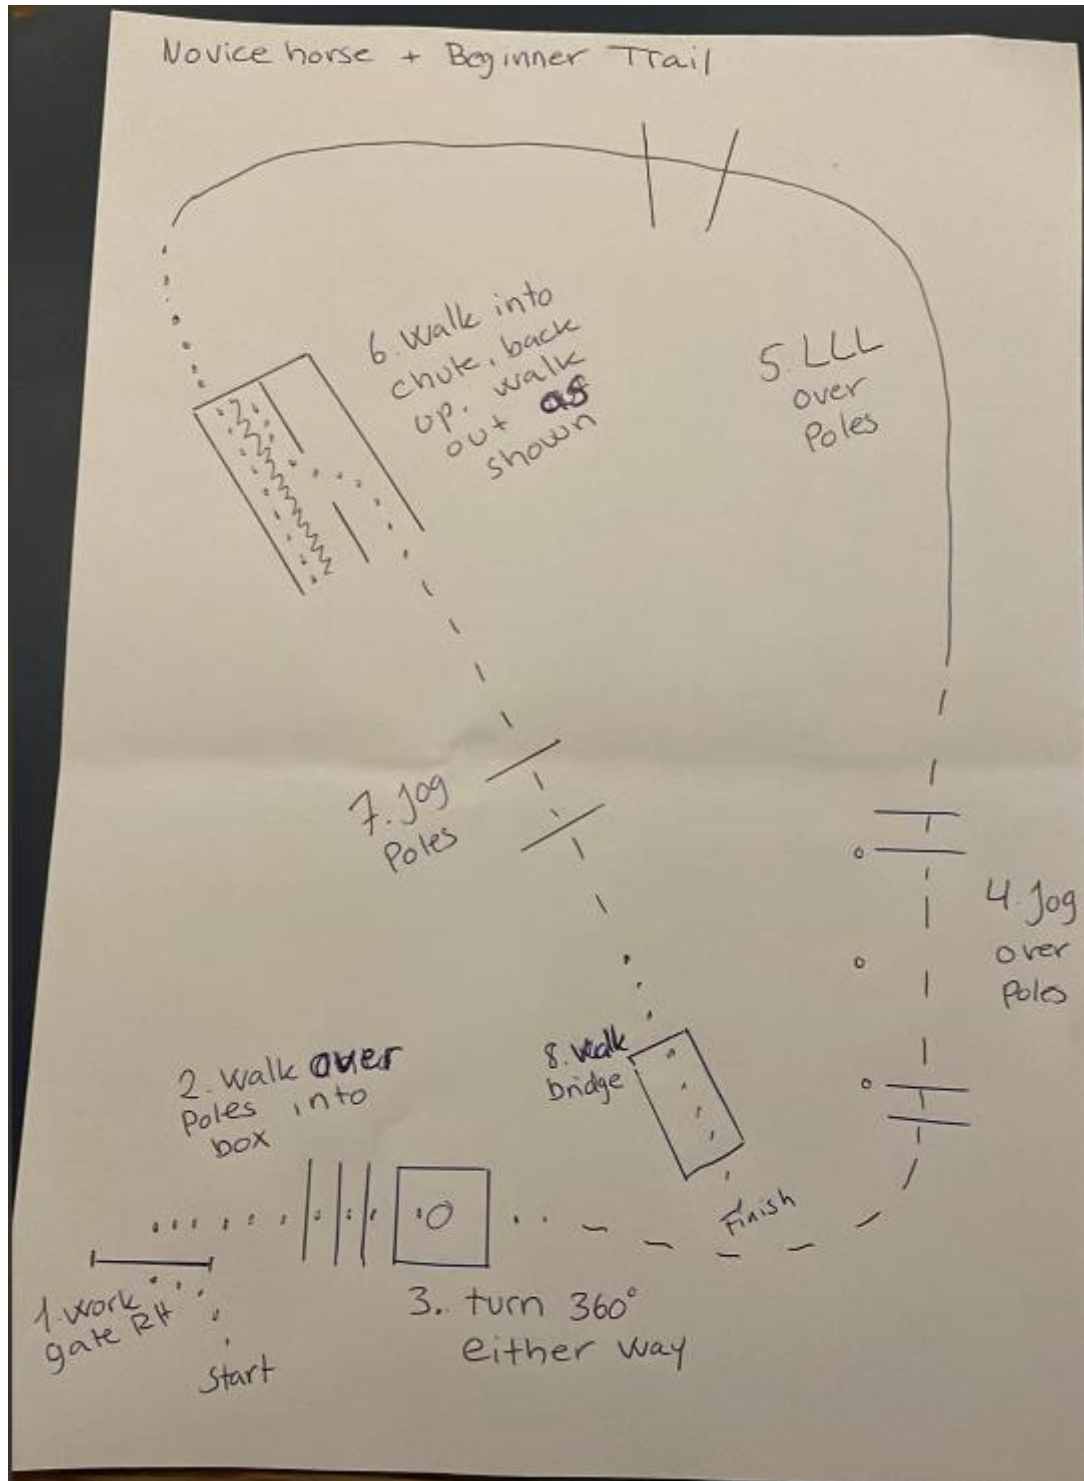 Novice horse + Beginner Trail
6. Walk into
chute, back
up. walk
out as
shown
5. LLL
over
Poles
7. Jog
Poles
4. Jog
over
Poles
2. Walk over
Poles into
box
8. Walk
bridge
Finish
1. Work
gate RH
Start
3. turn 360°
either way